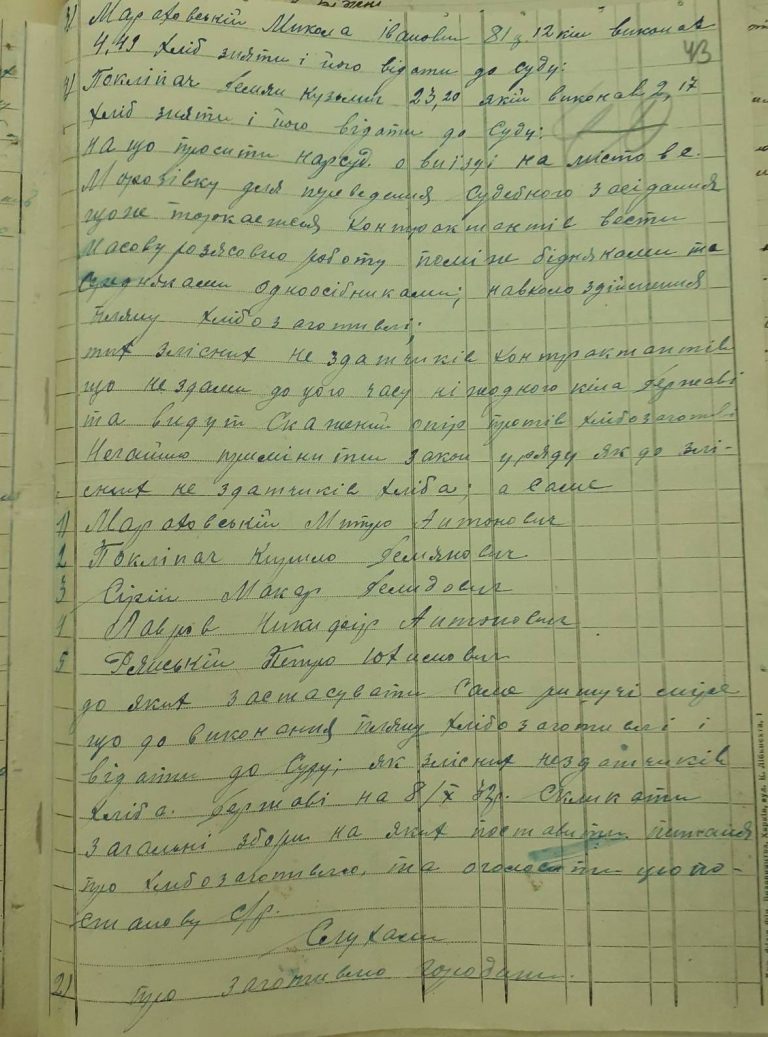 3) Мараховській Микола Іванович 81 з 12 кіл виконав
4,49 хліб зняти і його відати до суду:
43
4) Покліпач Демян Кузьмич 23,20 якій виконав 2,17
хліб зняти і його відати до Суду:
на що просити нарсуд. о виїзді на місто в с.
Морозівку для переведення Судебного засідання
що ж торкаєтися контрактантів вести
масову розясовчу роботу поміж бідняками та
Середняками одноосібниками; навколо здійснення
пляну хлібозаготивлі;
тих злісних не здатчиків контрактантів
що не здали до цого часу ні жодного кіла Державі
та ведут Скажений опір протів хлібозаготівлі
Негайно примініти закон уряду як до злі-
сних не здатчиків хліба; а Саме
1) Мараховській Митро Антонович
2 Покліпач Кирило Демянович
3 Сірій Макар Демидович
4 Лавров Никифір Антонович
5 Рянській Петро Юхимович
до яких застасувати Саме ришучі міри
що до виконання пляну хлібозаготивлі і
відати до Суду; як злісних нездатчиків
хліба Державі на 8/X 32р. Скликати
загальні збори на яких поставити питання
про хлібозаготивлю, та оголосити цю по-
станову с/р.
Слухали
2) про заготивлю городини.